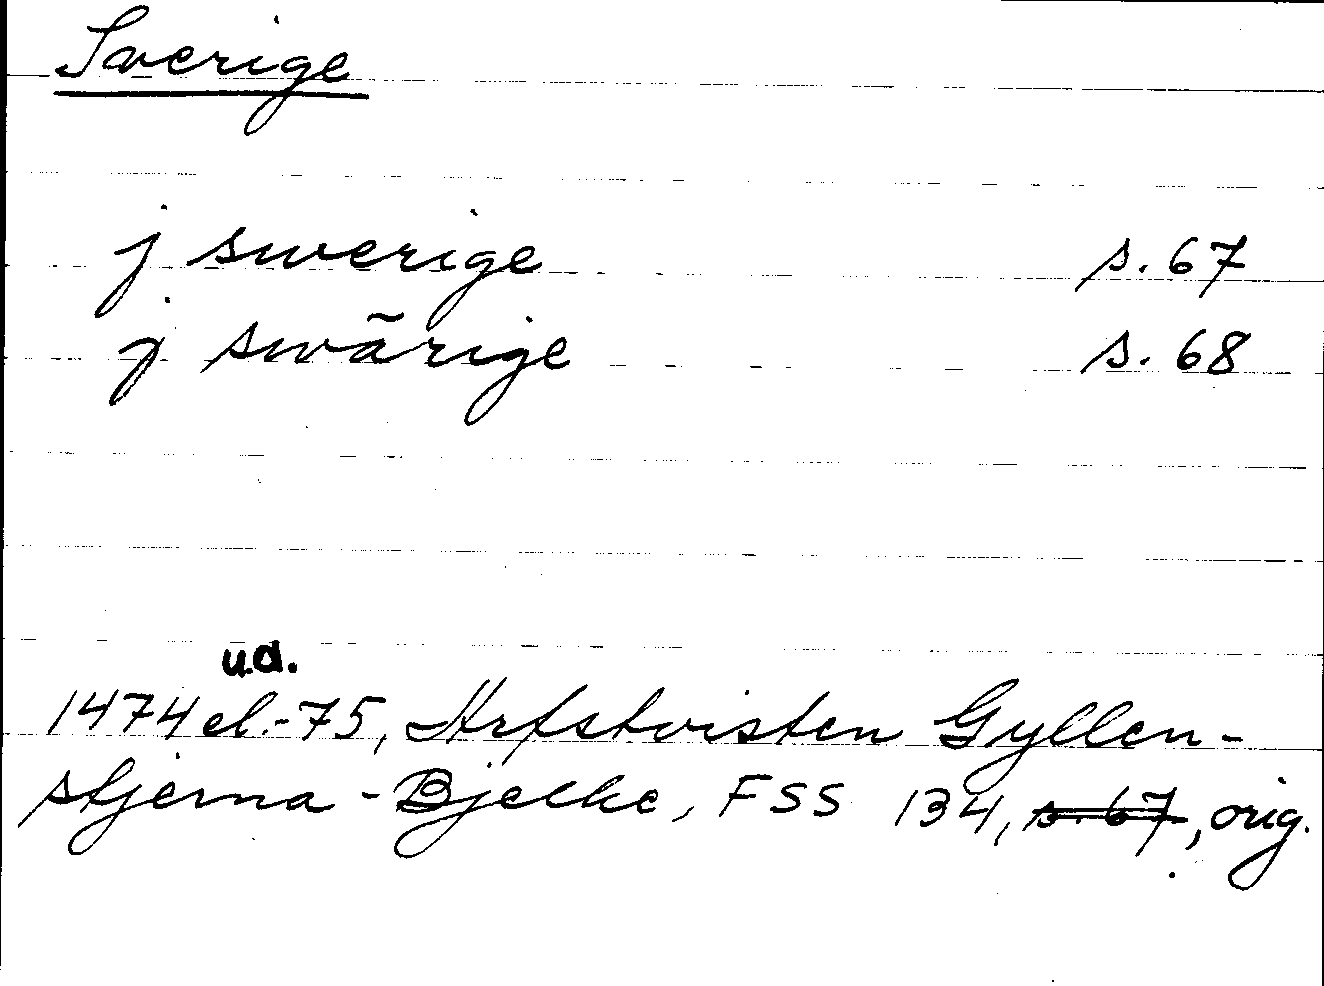 Sverige
j swerige s. 67
j swärige s. 68
u.d.
1474 el.-75, Arfstvisten Gyllen-
stjerna - Bjelke, FSS 134, s. 67, orig.